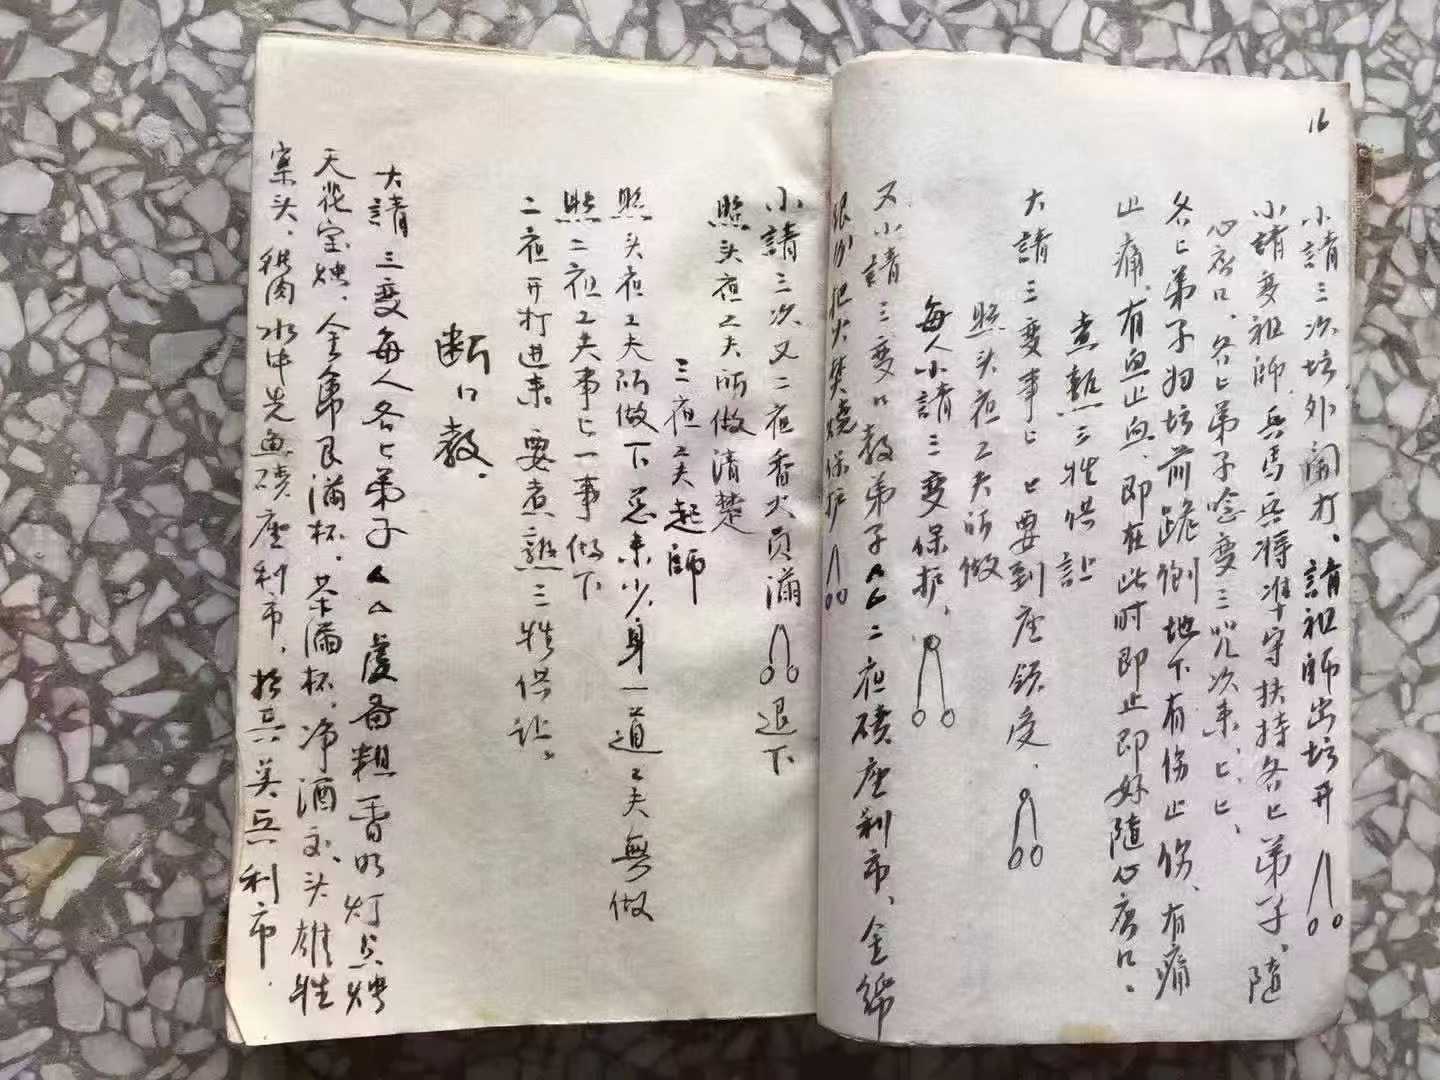 16
小請三次坛外開打、請祖師出坛开
小請变祖師、兵馬兵将准守扶持各匕弟子、随
心店口、各匕弟子唸变三咒次来、匕匕、
各匕弟子妇坛前跪倒地下有伤止伤、有痛
止痛、有血止血、即在此时即止即好随心店口。
煮熟三牲供
大請三变事匕匕要到座领受、
照头夜工夫所做
每人小請三变保护、
又小請三变口教弟子厶厶二夜磧座利市、金錦
银份把火焚燒保护
小請三次又二夜香火员滿退下
照头夜工夫所做清楚
三夜工夫起師
照头夜工夫所做下忌来少身一道工夫無做
照二夜工夫事匕一事做下
二夜开打进来要煮熟三牲供
断口教.
大請三变每人各匕弟子厶厶虔备粗香明灯点烛
天花宝烛、金帛良滿杯、茶滿杯、净酒头雄牲
案头、水中先鱼磧座利市、招兵英兵利市.